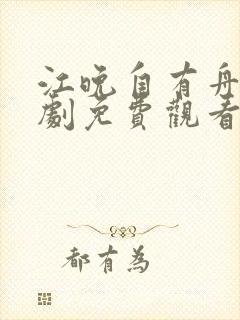 江晚自有舟
劇免費觀看
都有為